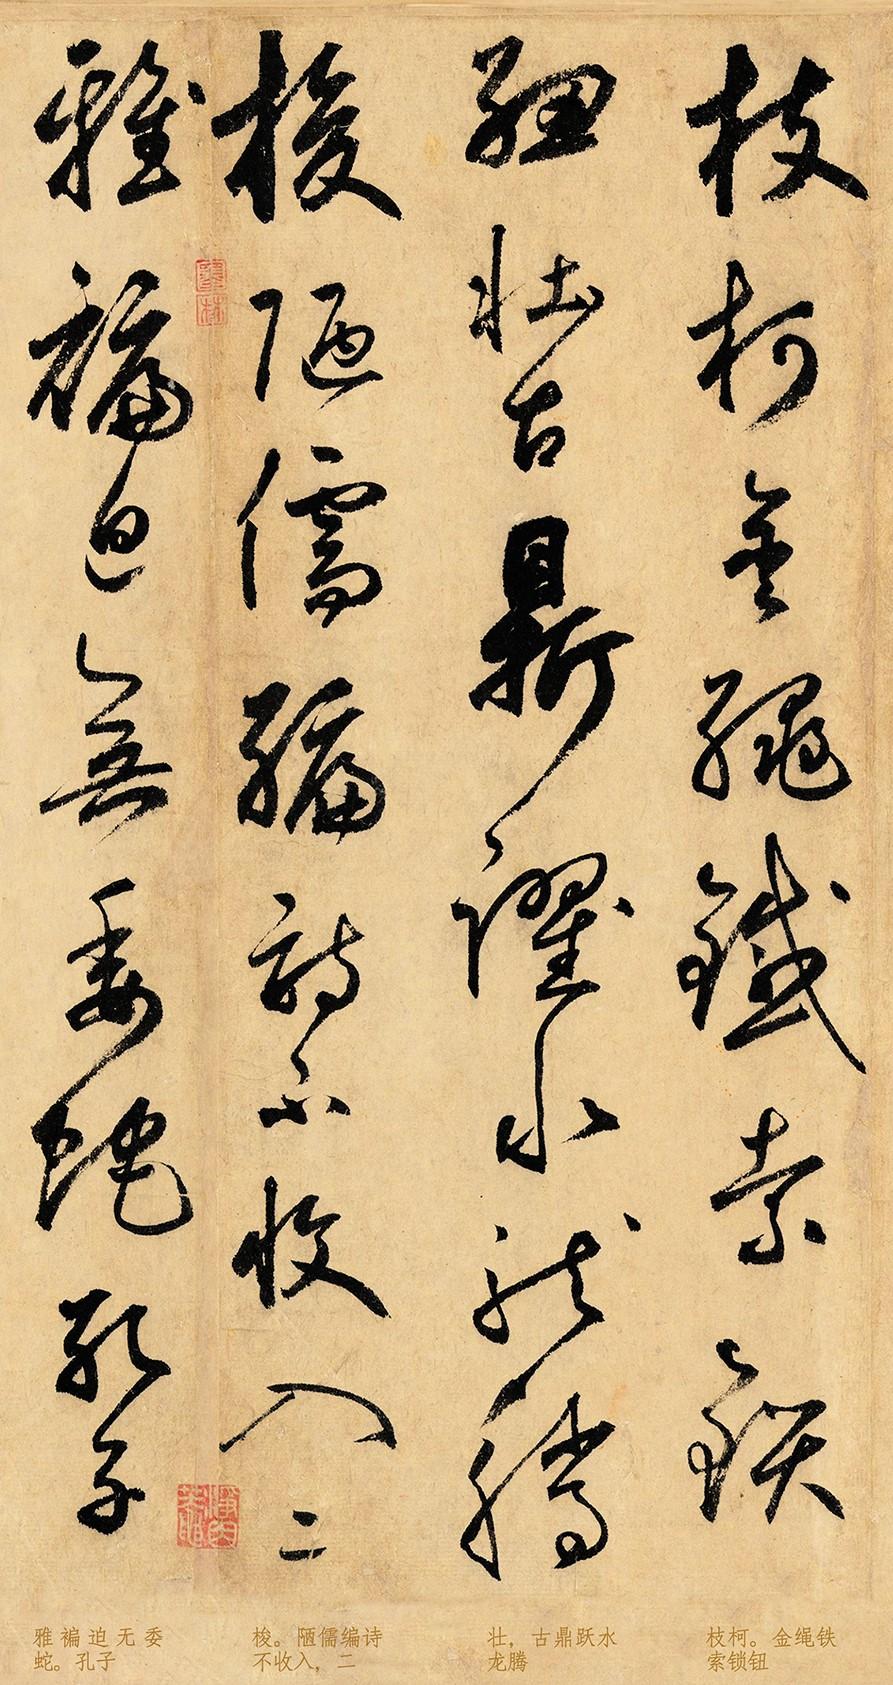 枝柯金繩鐵索鎖
紐壯古鼎躍水龍騰
梭陋儒編詩不收入二
雅褊迫無委蛇孔子
枝柯。金绳铁
索锁钮
壮，古鼎跃水
龙腾
梭。陋儒编诗
不收入，二
雅褊迫无委
蛇。孔子